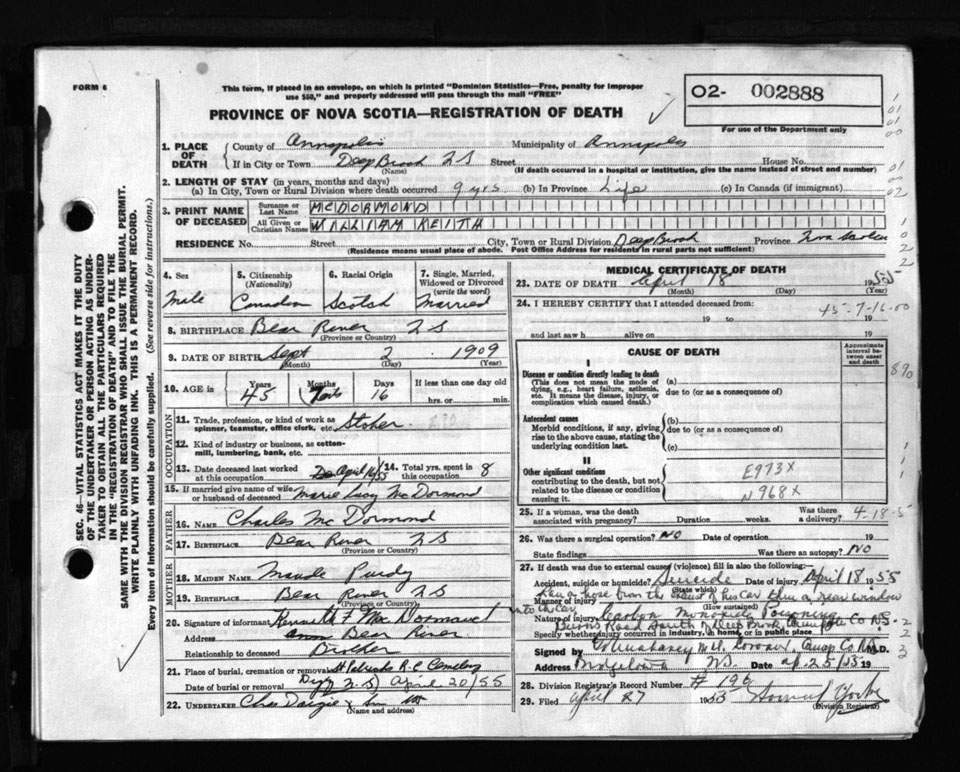 FORM 6
This form, if placed in an envelope, on which is printed "Dominion Statistics—Free, penalty for improper
use $50," and properly addressed will pass through the mail "FREE"
PROVINCE OF NOVA SCOTIA—REGISTRATION OF DEATH
O2- 002888
For use of the Department only
1. PLACE OF DEATH
County of Annapolis Municipality of Annapolis
If in City or Town Deep Brook N S Street House No.
(Name) (If death occurred in a hospital or institution, give the name instead of street and number)
2. LENGTH OF STAY (in years, months and days)
(a) In City, Town or Rural Division where death occurred 9 yrs. (b) In Province Life (c) In Canada (if immigrant)
3. PRINT NAME OF DECEASED
Surname or Last Name MCDORMOND
All Given or Christian Names WILLIAM KEITH
RESIDENCE No. Street City, Town or Rural Division Deep Brook Province Nova Scotia
(Residence means usual place of abode. Post Office Address for residents in rural parts not sufficient)
SEC. 46—VITAL STATISTICS ACT MAKES IT THE DUTY
OF THE UNDERTAKER OR PERSON ACTING AS UNDER-
TAKER TO OBTAIN ALL THE PARTICULARS REQUIRED
IN THE "REGISTRATION OF DEATH" AND TO FILE THE
SAME WITH THE DIVISION REGISTRAR WHO SHALL ISSUE THE BURIAL PERMIT.
WRITE PLAINLY WITH UNFADING INK. THIS IS A PERMANENT RECORD.
Every item of information should be carefully supplied. (See reverse side for instructions.)
4. Sex 5. Citizenship (Nationality) 6. Racial Origin 7. Single, Married, Widowed or Divorced (write the word)
Male Canadian Scotch Married
8. BIRTHPLACE Bear River N S
(Province or Country)
9. DATE OF BIRTH Sept 2 1909
(Month) (Day) (Year)
10. AGE in Years Months Days If less than one day old
45 7 16 hrs. or min.
OCCUPATION
11. Trade, profession, or kind of work as
spinner, teamster, office clerk, etc. Stoker
12. Kind of industry or business, as cotton-
mill, lumbering, bank, etc.
13. Date deceased last worked at this occupation April 16/55 14. Total yrs. spent in this occupation 8
15. If married give name of wife or husband of deceased Marie Lucy McDormond
FATHER
16. NAME Charles McDormond
17. BIRTHPLACE Bear River N S
(Province or Country)
MOTHER
18. MAIDEN NAME Maude Purdy
19. BIRTHPLACE Bear River N S
(Province or Country)
20. Signature of informant Kenneth F McDormand
Address Bear River
Relationship to deceased Brother
21. Place of burial, cremation or removal St Patricks R.C. Cemetery
Date of burial or removal Digby N.S. April 20/55
22. UNDERTAKER Chas Dargie & Son
(Name and address)
MEDICAL CERTIFICATE OF DEATH
23. DATE OF DEATH April 18 1955
(Month) (Day) (Year)
24. I HEREBY CERTIFY that I attended deceased from:
45-7-16-00
19 to 19
and last saw h alive on 19
CAUSE OF DEATH
Approximate interval between onset and death
I
Disease or condition directly leading to death (a)
(This does not mean the mode of dying, e.g., heart failure, asthenia, etc. It means the disease, injury, or complication which caused death.) due to (or as a consequence of)
Antecedent causes (b)
Morbid conditions, if any, giving rise to the above cause, stating the underlying condition last. due to (or as a consequence of)
(c)
II
Other significant conditions
contributing to the death, but not related to the disease or condition causing it.
E973X
N968X
890
25. If a woman, was the death associated with pregnancy? Duration weeks. Was there a delivery? 4-18-5
26. Was there a surgical operation? No Date of operation 19
State findings Was there an autopsy? No
27. If death was due to external causes (violence) fill in also the following:—
Accident, suicide or homicide? Suicide Date of injury April 18 1955
(State which)
Manner of injury Ran a hose from the exhaust of his car thru a rear window into car
(How sustained)
Nature of injury Carbon Monoxide Poisoning
Road South of Deep Brook Annapolis Co N.S.
Specify whether injury occurred in industry, in home, or in public place
Signed by M.D. Coroner, Annap Co M.D.
Address Bridgetown N.S. Date Ap. 25/55 19
28. Division Registrar's Record Number # 196
29. Filed April 27 1955
(Division Registrar)